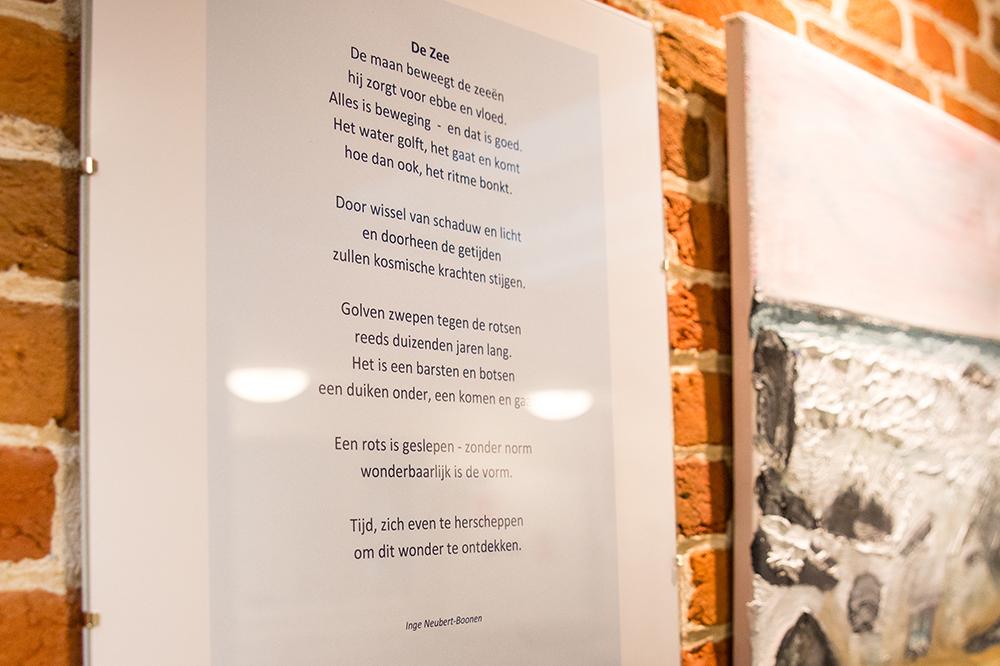 De Zee
De maan beweegt de zeeën
hij zorgt voor ebbe en vloed.
Alles is beweging - en dat is goed.
Het water golft, het gaat en komt
hoe dan ook, het ritme bonkt.
Door wissel van schaduw en licht
en doorheen de getijden
zullen kosmische krachten stijgen.
Golven zwepen tegen de rotsen
reeds duizenden jaren lang.
Het is een barsten en botsen
een duiken onder, een komen en
Een rots is geslepen - zonder norm
wonderbaarlijk is de vorm.
Tijd, zich even te herscheppen
om dit wonder te ontdekken.
Inge Neubert-Boonen